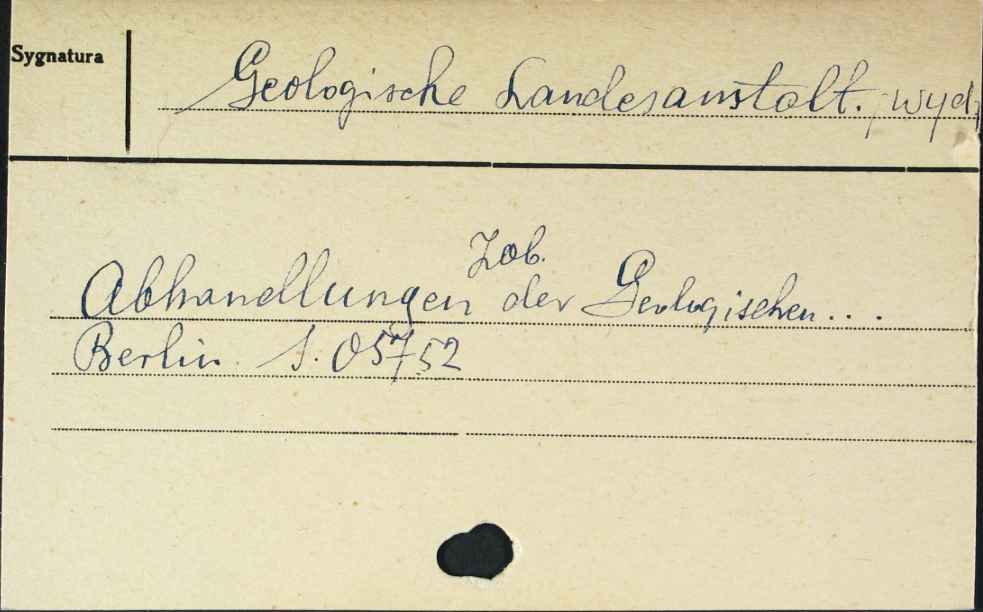 Sygnatura
Geologische Landesanstalt. wyd.
Zob.
Abhandlungen der Geologischen...
Berlin S. 05752